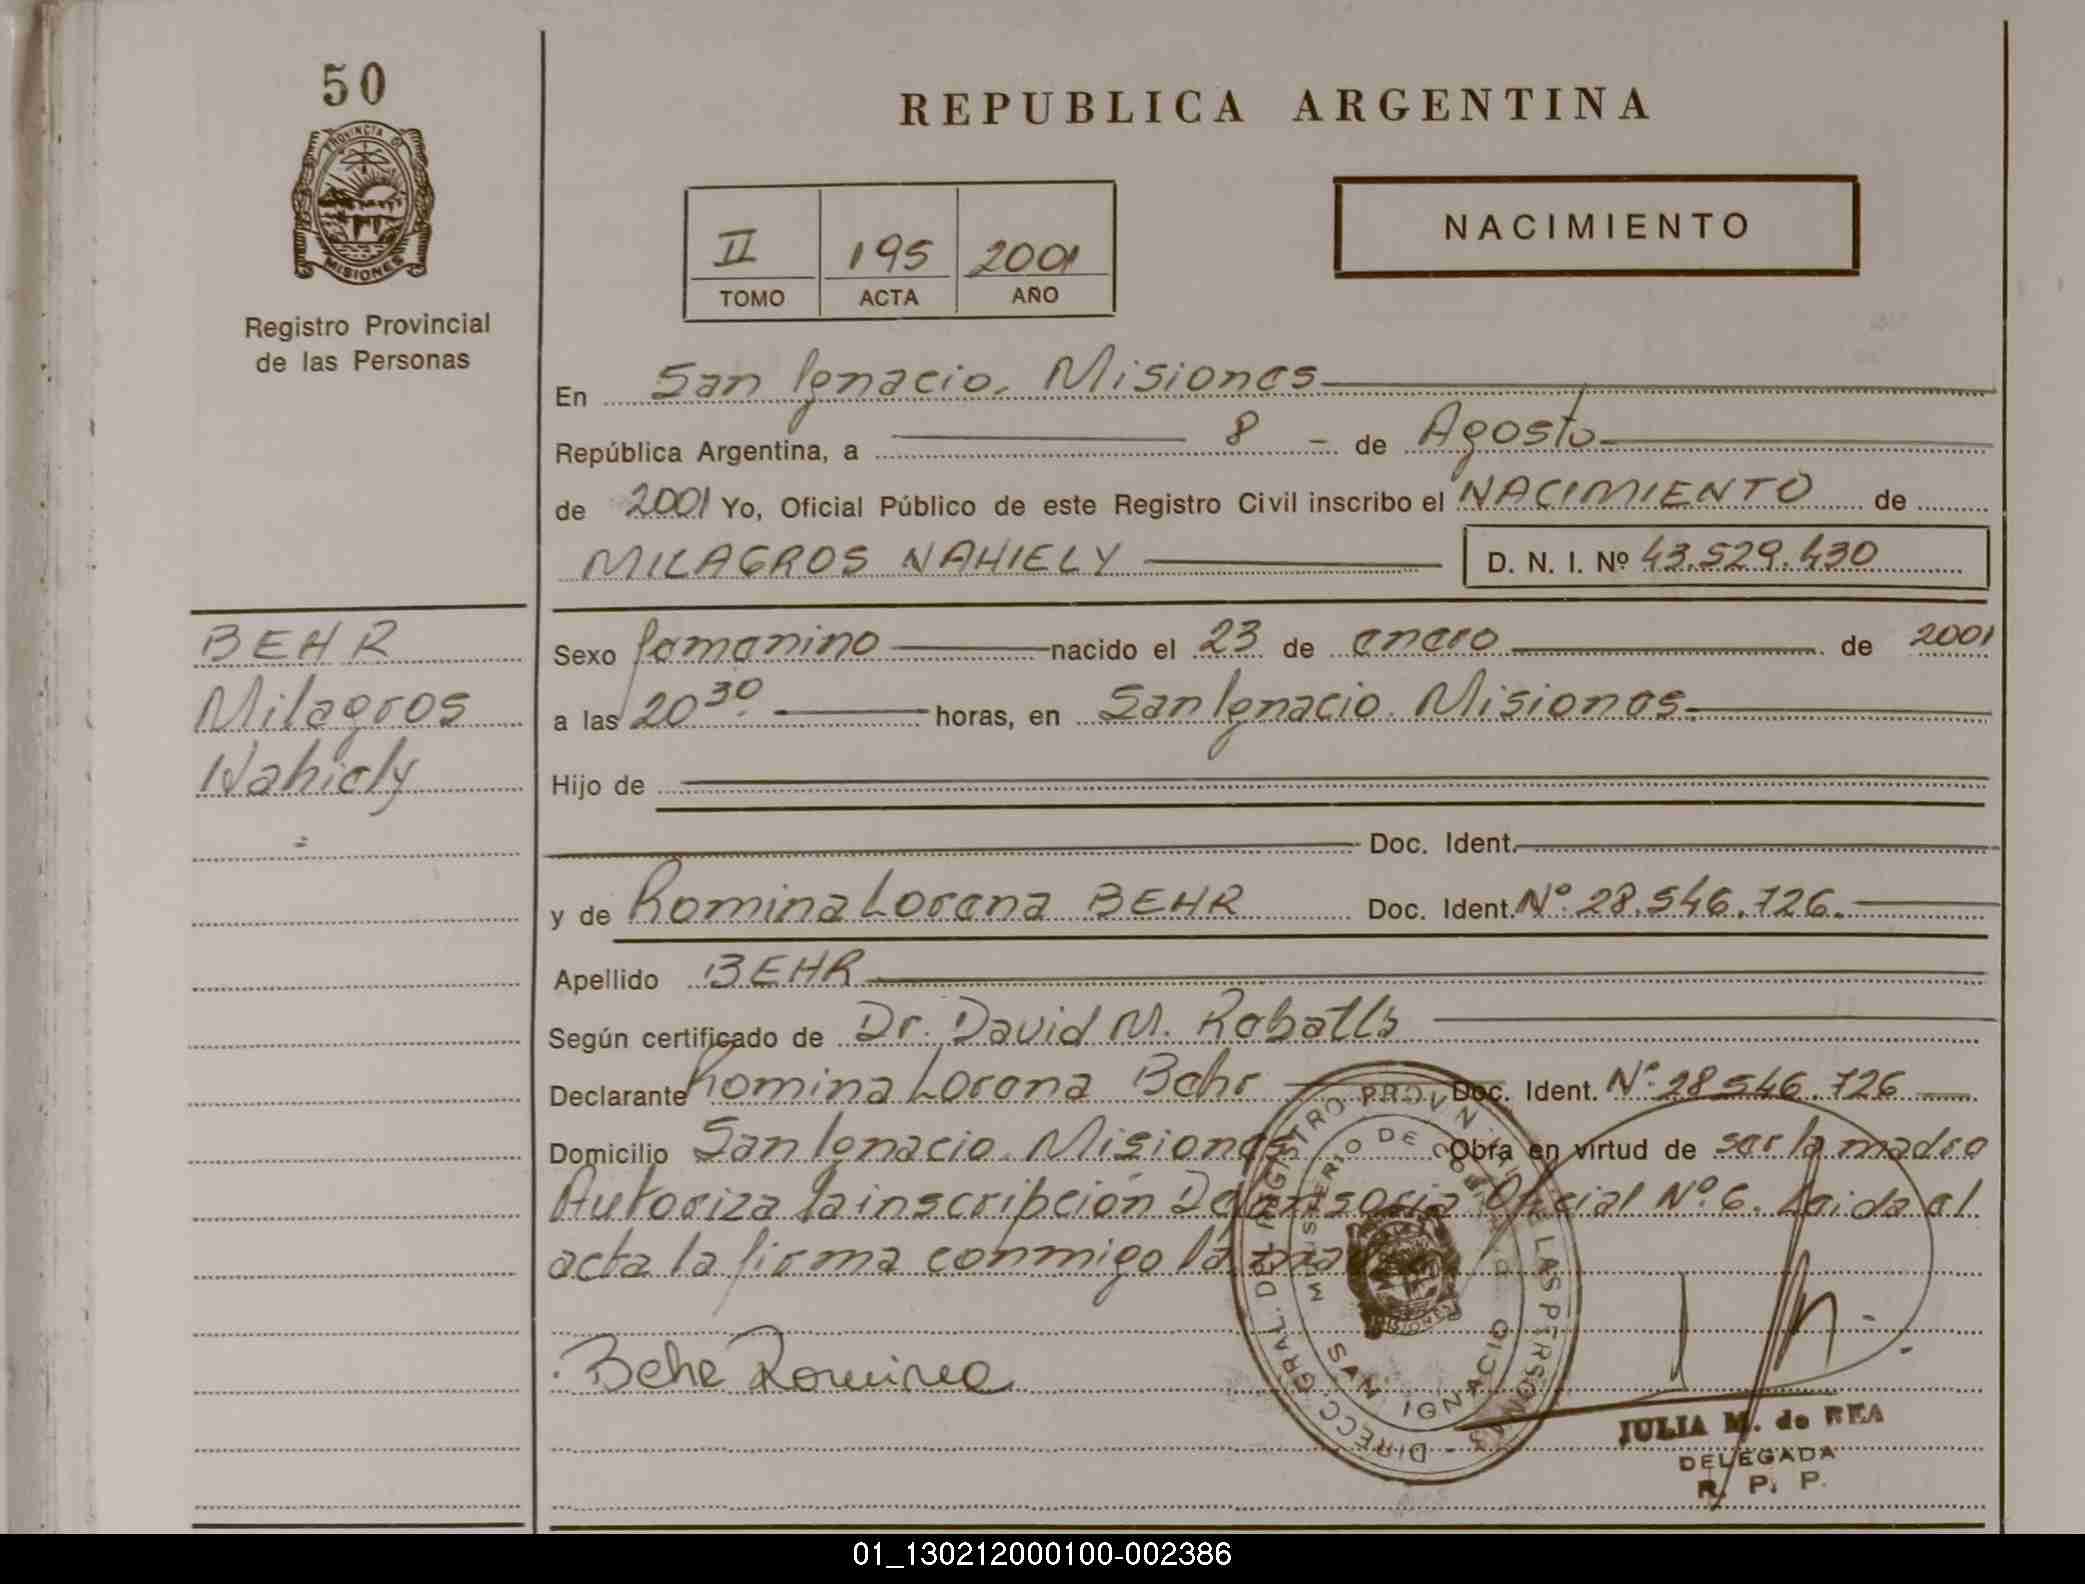 50
PROVINCIA DE
MISIONES
Registro Provincial
de las Personas
REPUBLICA ARGENTINA
NACIMIENTO
II 195 2001
TOMO ACTA AÑO
En San Ignacio. Misiones
República Argentina, a 8 - de Agosto
de 2001 Yo, Oficial Público de este Registro Civil inscribo el NACIMIENTO de
MILAGROS NAHIELY D. N. I. Nº 43.529.430
BEHR
Milagros
Nahiely
Sexo femenino nacido el 23 de enero de 2001
a las 20 30 horas, en San Ignacio. Misiones.
Hijo de
Doc. Ident.
y de Romina Lorena BEHR Doc. Ident. Nº 28.546.726.
Apellido BEHR
Según certificado de Dr. David M.
Declarante Romina Lorena Behr Doc. Ident. Nº 28546.726
Domicilio San Ignacio. Misiones Obra en virtud de ser la madre
Autoriza la inscripción Defensoria Oficial Nº 6. Leida el
acta la firma conmigo la madre
Behr Romina
DIRECC. GRAL. DEL REGISTRO PROVIN. DE LAS PERSONAS
MINISTERIO DE GOBIERNO
MISIONES
SAN IGNACIO
JULIA M. de REA
DELEGADA
R. P. P.
01_130212000100-002386